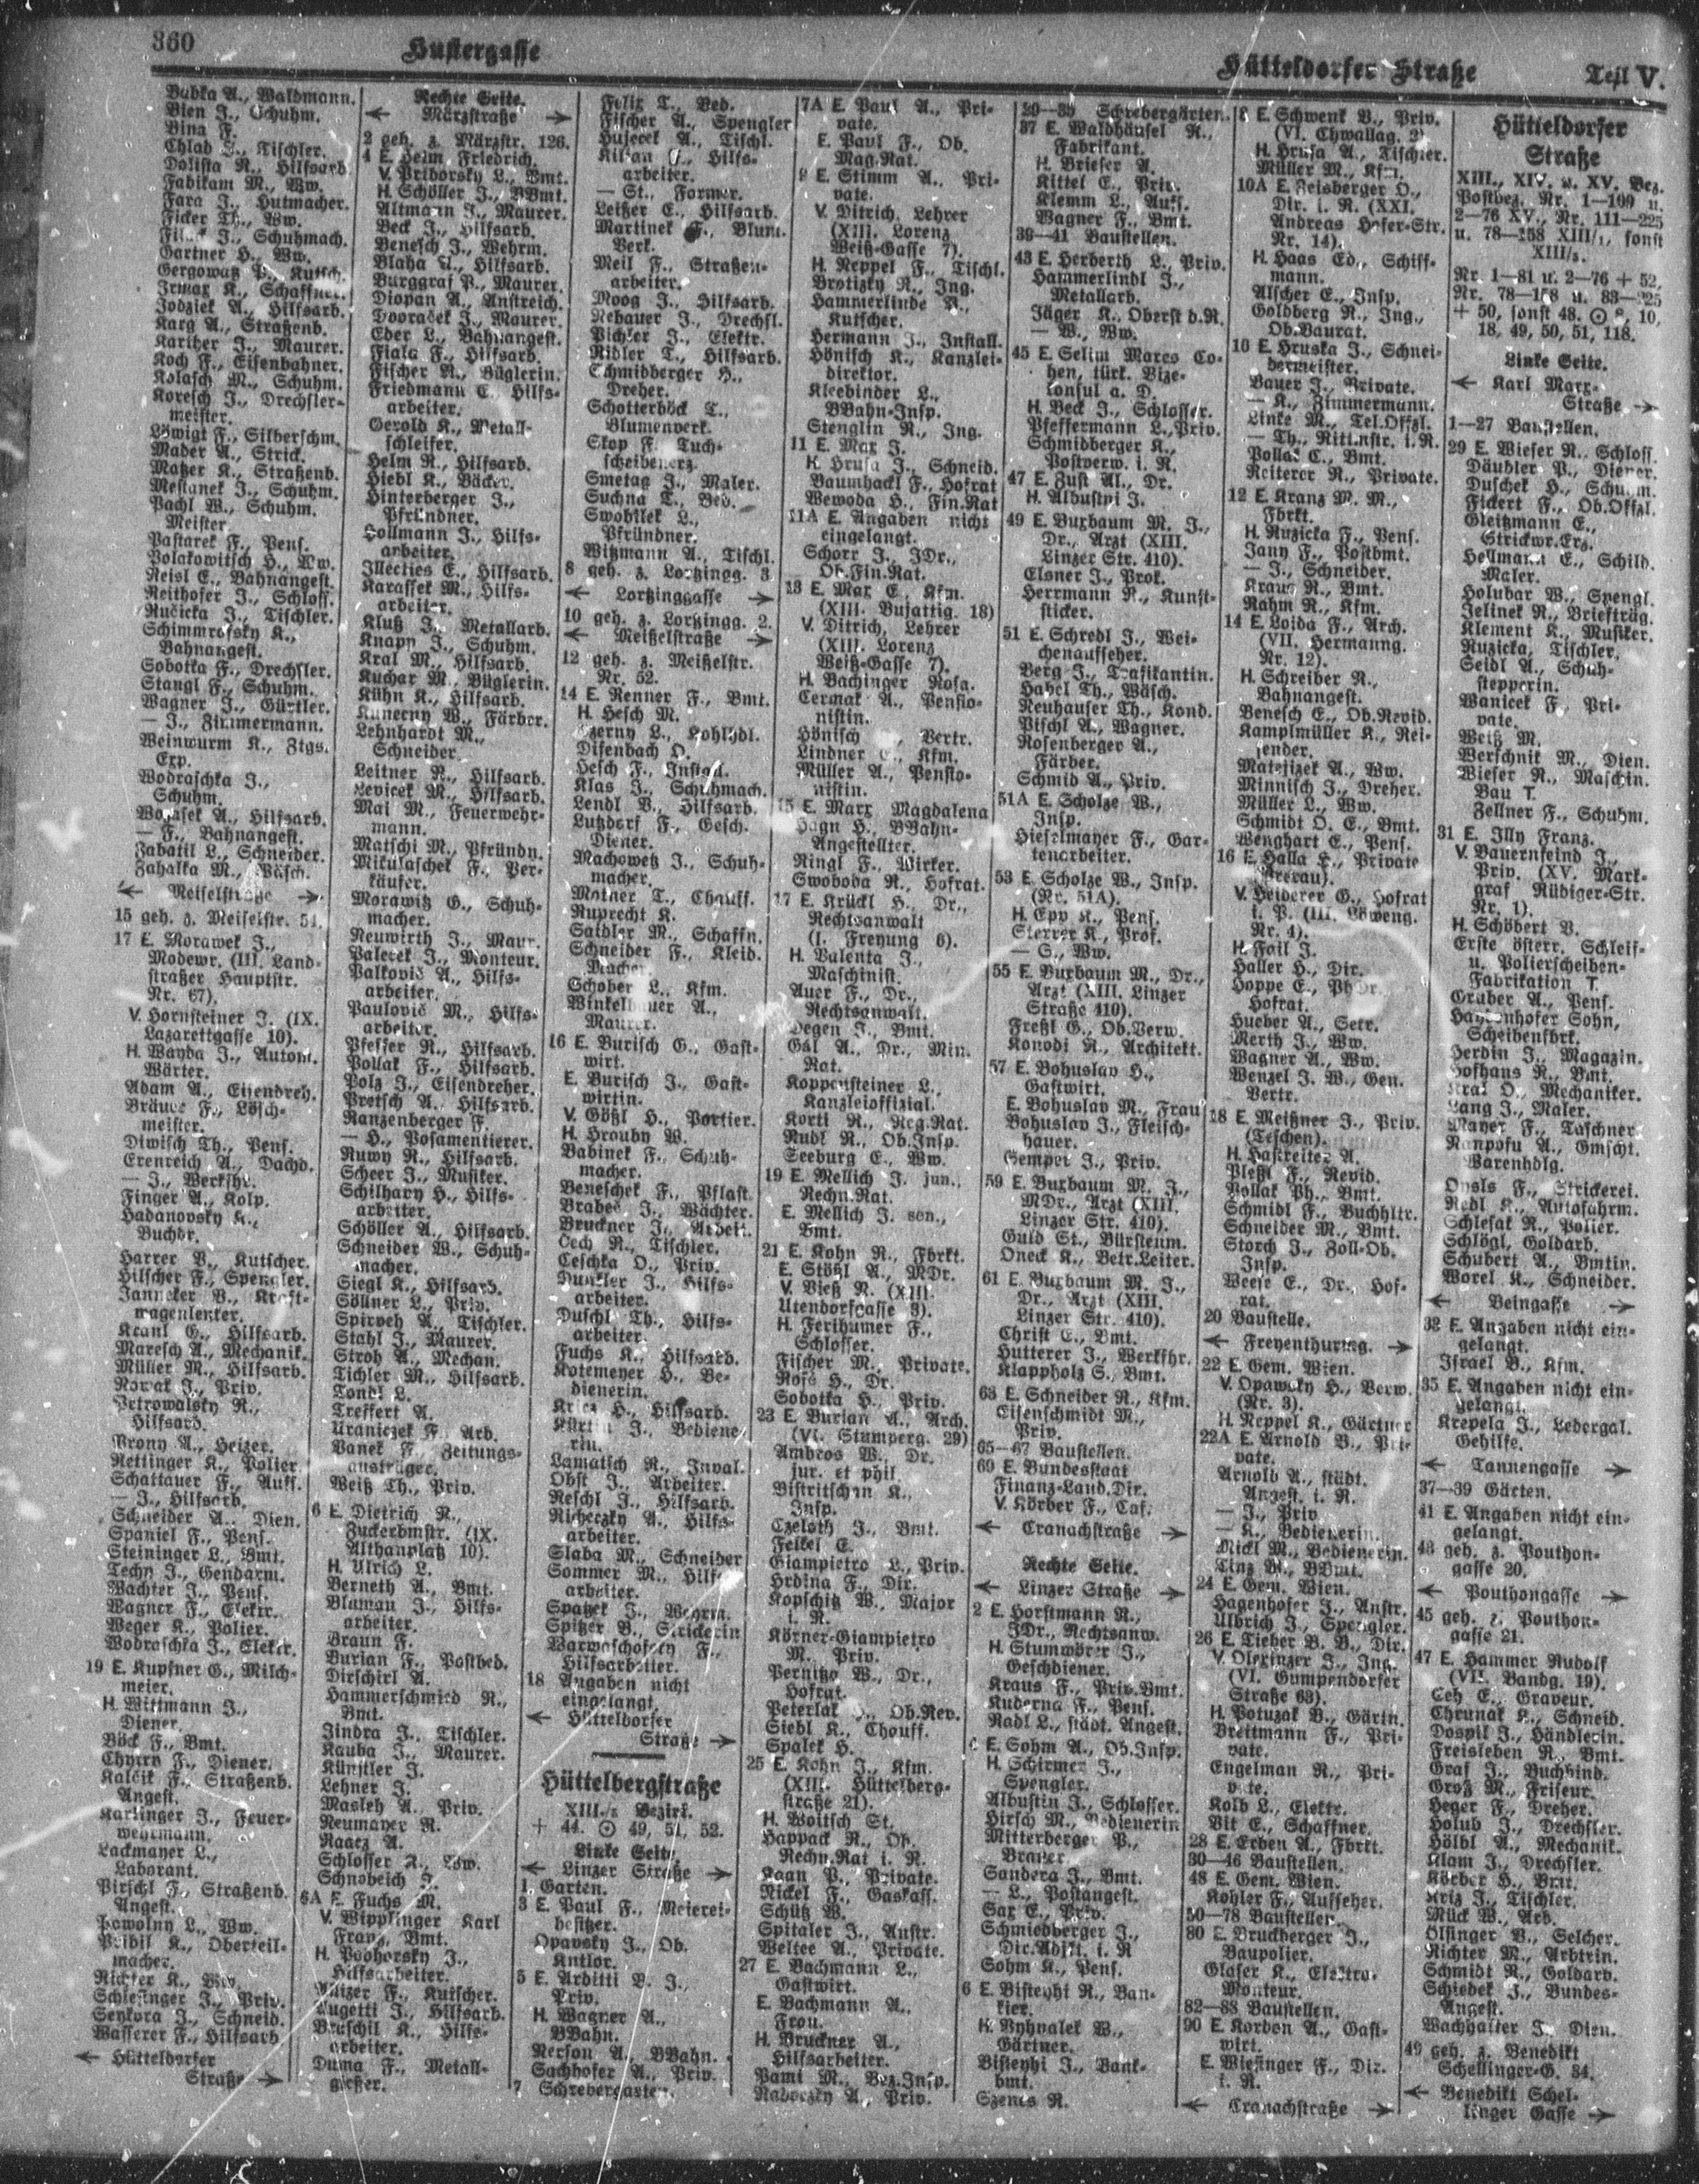 360
Hustergasse
Hütteldorfer Straße
Teil V.
Bubka A., Waldmann.
Bien J., Schuhm.
Bina F.
Chlad J., Tischler.
Dolista R., Hilfsarb.
Fabikam M., Ww.
Fara J., Hutmacher.
Ficker Th., Ww.
J., Schuhmach.
Gartner H., Ww.
Gergowatz P., Kutsch.
Irmax K., Schaffner.
Jodziek A., Hilfsarb.
Karg A., Straßenb.
Karther J., Maurer.
Koch F., Eisenbahner.
Kolasch M., Schuhm.
Koresch J., Drechsler-
meister.
Löwigt F., Silberschm.
Mader A., Strick.
Matzer K., Straßenb.
Mestanek J., Schuhm.
Pachl W., Schuhm.
Meister.
Pastarek F., Pens.
Polakowitsch H., Ww.
Reisl E., Bahnangest.
Reithofer J., Schloss.
Ručicka J., Tischler.
Schimmrofsky K.,
Bahnangest.
Sobotka F., Drechsler.
Stangl F., Schuhm.
Wagner J., Gürtler.
— J., Zimmermann.
Weinwurm K., Ztgs.
Exp.
Wodraschka J.,
Schuhm.
A., Hilfsarb.
— F., Bahnangest.
Zabatil L., Schneider.
Zahalka M., Wäsch.
← Meiselstraße →
15 geh. z. Meiselstr. 51.
17 E. Morawek J.,
Modewr. (III. Land-
straßer Hauptstr.
Nr. 67).
V. Hornsteiner J. (IX.
Lazarettgasse 10).
H. Wayda J., Autom.
Wärter.
Adam A., Eisendreh.
Bräuer F., Lösch-
meister.
Diwisch Th., Pens.
Erenreich A., Dachd.
— J., Werksfhr.
Finger A., Kolp.
Hadanovsky K.,
Buchdr.
Harrer V., Kutscher.
Hilscher F., Spengler.
Jannecker V., Kraft-
wagenlenker.
Kranl G., Hilfsarb.
Maresch A., Mechanik.
Müller M., Hilfsarb.
Nowak J., Priv.
Petrowalsky R.,
Hilfsarb.
Prony A., Heizer.
Rettinger K., Polier.
Schattauer F., Aufs.
— J., Hilfsarb.
Schneider A., Dien.
Spaniel F., Pens.
Steininger L., Bmt.
Techy J., Gendarm.
Wachter J., Pens.
Wagner F., Elektr.
Weger K., Polier.
Wodraschka J., Elektr.
19 E. Kupfner G., Milch-
meier.
H. Wittmann J.,
Diener.
Böck F., Bmt.
Chyrry F., Diener.
Kalčik F., Straßenb.
Angest.
Karlinger J., Feuer-
wehrmann.
Lackmayer L.,
Laborant.
Pirschl F., Straßenb.
Angest.
Powolny L., Ww.
Pribil K., Oberteil-
macher.
Richter K., Ww.
Schlesinger J., Priv.
Seykora J., Schneid.
Wasserer F., Hilfsarb
← Hütteldorfer
Straße →
Rechte Seite.
← Märzstraße →
2 geh. z. Märzstr. 126.
4 E. Helm Friedrich.
V. Priborsky L., Bmt.
H. Schöller J., BBmt.
Altmann J., Maurer.
Beck J., Hilfsarb.
Benesch J., Wehrm.
Blaha A., Hilfsarb.
Burggraf P., Maurer.
Diopan A., Anstreich.
Dvoraček J., Maurer.
Eder L., Bahnangest.
Fiala F., Hilfsarb.
Fischer A., Büglerin.
Friedmann C., Hilfs-
arbeiter.
Gerold K., Metall-
schleifer.
Helm R., Hilfsarb.
Hiebl K., Bäcker.
Hinterberger J.,
Pfründner.
Hollmann J., Hilfs-
arbeiter.
Illecties E., Hilfsarb.
Karassek M., Hilfs-
arbeiter.
Kluß J., Metallarb.
Knapp J., Schuhm.
Kral M., Hilfsarb.
Kuchar M., Büglerin.
Kühn K., Hilfsarb.
Kunerny W., Färber.
Lehnhardt M.,
Schneider.
Leitner R., Hilfsarb.
Levicek M., Hilfsarb.
Mai M., Feuerwehr-
mann.
Matschi M., Pfründn.
Mikulaschek F., Ver-
käufer.
Morawitz G., Schuh-
macher.
Neuwirth J., Maur.
Palecek J., Monteur.
Palkovič A., Hilfs-
arbeiter.
Paulovič M., Hilfs-
arbeiter.
Pfeffer R., Hilfsarb.
Pollak F., Hilfsarb.
Polz J., Eisendreher.
Pretsch A., Hilfsarb.
Ranzenberger F.
— H., Posamentierer.
Ruwy R., Hilfsarb.
Scheer J., Musiker.
Schilhary H., Hilfs-
arbeiter.
Schöller A., Hilfsarb.
Schneider W., Schuh-
macher.
Siegl K., Hilfsarb.
Söllner L., Priv.
Spirveh A., Tischler.
Stahl J., Maurer.
Stroh A., Mechan.
Tichler M., Hilfsarb.
Tondl L.
Treffert A.
Uraniczek F., Arb.
Vanek F., Zeitungs-
austräger.
Weiß Th., Priv.
6 E. Dietrich R.,
Zuckerbmstr. (IX.
Althanplatz 10).
H. Ulrich L.
Berneth A., Bmt.
Blaman J., Hilfs-
arbeiter.
Braun F.
Burian F., Postbed.
Dirschirl A.
Hammerschmied R.,
Bmt.
Jindra J., Tischler.
Kauba J., Maurer.
Künstler J.
Lehner J.
Masleh A., Priv.
Neumayer R.
Raacz A.
Schlosser K., Ww.
Schnobeich J.
6A E. Fuchs M.
V. Wipplinger Karl
Franz, Bmt.
H. Podhorsky J.,
Hilfsarbeiter.
F., Kutscher.
Bugetti J., Hilfsarb.
Bruschil K., Hilfs-
arbeiter.
Duma F., Metall-
gießer.
Felix T., Bed.
Fischer A., Spengler
Hujecek A., Tischl.
Kilian J., Hilfs-
arbeiter.
— St., Former.
Leitzer E., Hilfsarb.
Martinek F., Blum.
Verk.
Meil F., Straßen-
arbeiter.
Moog J., Hilfsarb.
Nebauer J., Drechsl.
Pichler J., Elektr.
Ridler T., Hilfsarb.
Schmidberger H.,
Dreher.
Schotterböck T.,
Blumenverk.
Skop F., Tuch-
scheibenerz.
Smetag J., Maler.
Suchna T., Bed.
Swobilek L.,
Pfründner.
Witzmann A., Tischl.
8 geh. z. Lortzingg. 3.
← Lortzinggasse →
10 geh. z. Lortzingg. 2.
← Meißelstraße →
12 geh. z. Meißelstr.
Nr. 52.
14 E. Renner F., Bmt.
H. Hesch M.
Czerny L., Kohlhdl.
Difenbach O.
Hesch F., Install.
Klas J., Schuhmach.
Lendl V., Hilfsarb.
Lutzdorf F., Gesch.
Diener.
Machowetz J., Schuh-
macher.
Motner T., Chauff.
Ruprecht K.
Saidler M., Schaffn.
Schneider F., Kleid.
Macher.
Schober L., Kfm.
Winkelbauer A.,
Maurer.
16 E. Burisch G., Gast-
wirt.
E. Burisch J., Gast-
wirtin.
V. Gößl H., Portier.
H. Hrouby W.
Babinek F., Schuh-
macher.
Beneschek F., Pflast.
Brabec J., Wächter.
Bruckner J., Arbeit.
Cech R., Tischler.
Ceschka O., Priv.
Dunkler J., Hilfs-
arbeiter.
Duschl Th., Hilfs-
arbeiter.
Fuchs K., Hilfsarb.
Kotemeyer H., Be-
dienerin.
H., Hilfsarb.
J., Bediene-
rin.
Lamatsch R., Inval.
Obst J., Arbeiter.
Reschl J., Hilfsarb.
Richeczky A., Hilfs-
arbeiter.
Slaba M., Schneider
Sommer M., Hilfs-
arbeiter.
Spatzek J., Wehrm.
Spitzer B., Strickerin
F.,
Hilfsarbeiter.
18 Angaben nicht
eingelangt.
← Hütteldorfer
Straße →
Hüttelbergstraße
XIII./5 Bezirk.
+ 44. ⊙ 49, 51, 52.
Linke Seite.
← Linzer Straße →
1 Garten.
3 E. Paul F., Meierei-
besitzer.
Opavsky J., Ob.
Kntlor.
5 E. Arditti B. J.,
Priv.
H. Wagner A.,
BBahn.
Nerson A., BBahn.
Sachhofer A., Priv.
7 Schrebergarten.
7A E. Paul A., Pri-
vate.
E. Paul F., Ob.
Mag.Rat.
9 E. Stimm A., Pri-
vate.
V. Ditrich, Lehrer
(XIII. Lorenz
Weiß-Gasse 7).
H. Neppel F., Tischl.
Brotizky R., Ing.
Hammerlinde R.,
Kutscher.
Hermann J., Install.
Hönisch K., Kanzlei-
direktor.
Kleebinder L.,
BBahn-Insp.
Stenglin R., Ing.
11 E. Max J.
H. Hrusa J., Schneid.
Baumhackl F., Hofrat
Wewoda H., Fin.Rat
11A E. Angaben nicht
eingelangt.
Schorr J., JDr.,
Ob.Fin.Rat.
13 E. Max E., Kfm.
(XIII. Bujattig. 18)
V. Ditrich, Lehrer
(XIII. Lorenz
Weiß-Gasse 7).
H. Bachinger Rosa.
Cermak A., Pensio-
nistin.
Hönisch Vertr.
Lindner C., Kfm.
Müller A., Pensio-
nistin.
15 E. Marx Magdalena
Hagn H., BBahn-
Angestellter.
Ringl F., Wirker.
Swoboda R., Hofrat.
17 E. Krückl H., Dr.,
Rechtsanwalt
(I. Freyung 6).
H. Valenta J.,
Maschinist.
Auer F., Dr.,
Rechtsanwalt.
Degen J., Bmt.
Gál A., Dr., Min.
Rat.
Koppensteiner L.,
Kanzleioffizial.
Korti R., Reg.Rat.
Rudl R., Ob.Insp.
Seeburg E., Ww.
19 E. Mellich J. jun.,
Rechn.Rat.
E. Mellich J. sen.,
Bmt.
21 E. Kohn R., Fbrkt.
E. Stößl A., MDr.
V. Vieß R. (XIII.
Utendorfgasse 3).
H. Ferihumer F.,
Schlosser.
Fischer M., Private.
Rosé H., Dr.
Sobotka H., Priv.
23 E. Burian A., Arch.
(VI. Stumperg. 29)
Ambros W., Dr.
jur. et phil.
Bistritschan K.,
Insp.
Czeloth J., Bmt.
Feikel E.
Giampietro L., Priv.
Hrdina F., Dir.
Kopschitz W., Major
i. R.
Körner-Giampietro
M., Priv.
Pernitza W., Dr.,
Hofrat.
Peterlak J., Ob.Rev.
Siebl K., Chauff.
Spalek H.
25 E. Kohn J., Kfm.
(XIII. Hüttelberg-
straße 21).
H. Woitsch St.
Happack R., Ob.
Rechn.Rat i. R.
Kaan P., Private.
Nickel F., Gaskass.
Schütz W.
Spitaler J., Anstr.
Weltee A., Private.
27 E. Bachmann L.,
Gastwirt.
E. Bachmann A.,
Frau.
H. Bruckner A.,
Hilfsarbeiter.
Pami M., Bez.Insp.
Raboczky A., Priv.
29—35 Schrebergärten.
37 E. Waldhäusel R.,
Fabrikant.
H. Brieser A.
Kittel E., Priv.
Klemm L., Aufs.
Wagner F., Bmt.
39—41 Baustellen.
43 E. Herberth L., Priv.
Hammerlindl J.,
Metallarb.
Jäger K., Oberst d.R.
— W., Ww.
45 E. Selim Marcs Co-
hen, türk. Vize-
konsul a. D.
H. Beck J., Schlosser.
Pfeffermann L., Priv.
Schmidberger K.,
Postverw. i. R.
47 E. Zust Al., Dr.
H. Albustyi J.
49 E. Buxbaum M. J.,
Dr., Arzt (XIII.
Linzer Str. 410).
Elsner J., Prok.
Herrmann R., Kunst-
sticker.
51 E. Schredl J., Wei-
chenaufseher.
Berg J., Trafikantin.
Habel Th., Wäsch.
Neuhauser Th., Kond.
Pischl A., Wagner.
Rosenberger A.,
Färber.
Schmid A., Priv.
51A E. Scholze W.,
Insp.
Hieselmayer F., Gar-
tenarbeiter.
53 E. Scholze W., Insp.
(Nr. 51A).
H. Epp K., Pens.
Sterrer K., Prof.
— S., Ww.
55 E. Buxbaum M., Dr.,
Arzt (XIII. Linzer
Straße 410).
Freßl G., Ob.Verw.
Konodi R., Architekt.
57 E. Bohuslav H.,
Gastwirt.
E. Bohuslav M., Frau
Bohuslav J., Fleisch-
hauer.
Gemper J., Priv.
59 E. Buxbaum M. J.,
MDr., Arzt (XIII.
Linzer Str. 410).
Guld St., Bürstenm.
Oneck K., Betr.Leiter.
61 E. Buxbaum M. J.,
Dr., Arzt (XIII.
Linzer Str. 410).
Christ E., Bmt.
Hutterer J., Werkfhr.
Klappholz S., Bmt.
63 E. Schneider R., Kfm.
Eisenschmidt M.,
Priv.
65—67 Baustellen.
69 E. Bundesstaat
Finanz-Land.Dir.
V. Körber F., Caf.
← Cranachstraße →
Rechte Seite.
← Linzer Straße →
2 E. Horstmann R.,
JDr., Rechtsanw.
H. Stumwörer J.,
Geschdiener.
Kraus F., Priv.Bmt.
Kuderna F., Pens.
Radl L., städt. Angest.
4 E. Sohm A., Ob.Insp.
H. Schirmer J.,
Spengler.
Albustin J., Schlosser.
Hirsch M., Bedienerin
Mitterberger P.,
Brauer.
Sandera J., Bmt.
— L., Postangest.
Sax E., Priv.
Schmiedberger J.,
Dir.Adjkt. i. R
Sohm K., Pens.
6 E. Bisteghi R., Ban-
kier.
H. Vyhnalek W.,
Gärtner.
Bisteghi J., Bank-
bmt.
Szenes R.
8 E. Schwenk V., Priv.
(VI. Chwallag. 2)
H. Hrusa A., Tischler.
Müller M., Kfm.
10A E. Zeisberger O.,
Dir. i. R. (XXI.
Andreas Hofer-Str.
Nr. 14).
H. Haas Ed., Schiff-
mann.
Alscher E., Insp.
Goldberg R., Ing.,
Ob.Baurat.
10 E. Hruska J., Schnei-
dermeister.
Bauer J., Private.
— K., Zimmermann.
Linke M., Tel.Offzl.
— Th., Rittmstr. i. R.
Pollac C., Bmt.
Reiterer R., Private.
12 E. Kranz M. M.,
Fbrkt.
H. Ruzicka F., Pens.
Jany F., Postbmt.
— J., Schneider.
Kraus R., Bmt.
Rahm R., Kfm.
14 E. Loida F., Arch.
(VII. Hermanng.
Nr. 12).
H. Schreiber R.,
Bahnangest.
Benesch E., Ob.Revid.
Kamplmüller K., Rei-
sender.
Matejizek A., Ww.
Minnisch J., Dreher.
Müller L., Ww.
Schmidt O. E., Bmt.
Wenghart E., Pens.
16 E. Halla H., Private
V. Heiderer G., Hofrat
i. P. (III. Löweng.
Nr. 4).
H. Fail J.
Haller H., Dir.
Hoppe E., PhDr.
Hofrat.
Hueber A., Setr.
Merth J., Ww.
Wagner A., Ww.
Wenzel J. W., Gen.
Vertr.
18 E. Meißner J., Priv.
(Teschen).
H. Hastreiter A.
Pleßl F., Revid.
Pollak Ph., Bmt.
Schmidl F., Buchhltr.
Schneider M., Bmt.
Storch J., Zoll-Ob.
Insp.
Weese E., Dr., Hof-
rat.
20 Baustelle.
← Freyenthurmg. →
22 E. Gem. Wien.
V. Opawsky H., Verw.
(Nr. 3).
H. Neppel K., Gärtner
22A E. Arnold B., Pri-
vate.
Arnold A., städt.
Angest. i. R.
— J., Priv
— K., Bedienerin.
Nickl M., Bedienerin.
Tinz M., BBmt.
24 E. Gem. Wien.
Hagenhofer J., Anstr.
Ulbrich J., Spengler.
26 E. Tieber B. B., Dir.
V. Olexinzer J., Ing.
(VI. Gumpendorfer
Straße 63).
H. Potuzak B., Gärtn.
Breitmann F., Pri-
vate.
Engelman R., Pri-
vate.
Kolb L., Elektr.
Vit E., Schaffner.
28 E. Erben A., Fbrkt.
30—46 Baustellen.
48 E. Gem. Wien.
Kohler F., Aufseher.
50—78 Baustellen.
80 E. Bruckberger J.,
Baupolier.
Glaser K., Elektro-
Monteur.
82—88 Baustellen.
90 E. Kordon A., Gast-
wirt.
E. Wiesinger F., Dir.
i. R.
← Cranachstraße →
Hütteldorfer
Straße
XIII., XIV. u. XV. Bez.
Postbez. Nr. 1—109 u.
2—76 XV., Nr. 111—225
u. 78—158 XIII/1, sonst
XIII/5.
Nr. 1—81 u. 2—76 + 52,
Nr. 78—158 u. 83—225
+ 50, sonst 48. ⊙ 8, 10,
18, 49, 50, 51, 118.
Linke Seite.
← Karl Marx-
Straße →
1—27 Baustellen.
29 E. Wieser R., Schloss.
Däubler P., Diener.
Duschek H., Schuhm.
Fickert F., Ob.Offzl.
Gleitzmann E.,
Strickwr.Erz.
Hellmann E., Schild.
Maler.
Holubar W., Spengl.
Jelinek R., Briefträg.
Klement K., Musiker.
Ruzicka, Tischler.
Seidl A., Schuh-
stepperin.
Wanicek F., Pri-
vate.
Weiß M.
Werschnik M., Dien.
Wieser R., Maschin.
Bau T.
Zellner F., Schuhm.
31 E. Illy Franz.
V. Bauernfeind J.,
Priv. (XV. Mark-
graf Rüdiger-Str.
Nr. 1).
H. Schöbert V.
Erste österr. Schleif-
u. Polierscheiben-
Fabrikation T.
Gruber A., Pens.
Haydenhofer Sohn,
Scheibenfbrt.
Herdin J., Magazin.
Hofhans R., Bmt.
Kral O., Mechaniker.
Lang J., Maler.
Mayer F., Taschner.
Ranpofu A., Gmscht.
Warenhdlg.
Opsls F., Strickerei.
Redl K., Autofuhrm.
Schlesak R., Polier.
Schlögl, Goldarb.
Schubert A., Bmtin.
Worel K., Schneider.
← Beingasse →
32 E. Angaben nicht ein-
gelangt.
Israel B., Kfm.
35 E. Angaben nicht ein-
gelangt.
Krepela J., Ledergal.
Gehilfe.
← Tannengasse →
37—39 Gärten.
41 E. Angaben nicht ein-
gelangt.
43 geh. z. Pouthon-
gasse 20.
← Pouthongasse →
45 geh. z. Pouthon-
gasse 21.
47 E. Hammer Rudolf
(VII. Bandg. 19).
Ceh E., Graveur.
Chrunak K., Schneid.
Dospil J., Händlerin.
Freisleben R., Bmt.
Graf J., Buchbind.
Groß M., Friseur.
Heger F., Dreher.
Holub J., Drechsler.
Hölbl A., Mechanik.
Klam J., Drechsler.
Körber H., Bmt.
Kriz J., Tischler.
Mück W., Arb.
Olsinger V., Selcher.
Richter M., Arbtrin.
Schmidt R., Goldarb.
Schiebek J., Bundes-
Angest.
Wachhalter J., Dien.
49 geh. z. Benedikt
Schellinger-G. 34.
← Benedikt Schel-
linger Gasse →